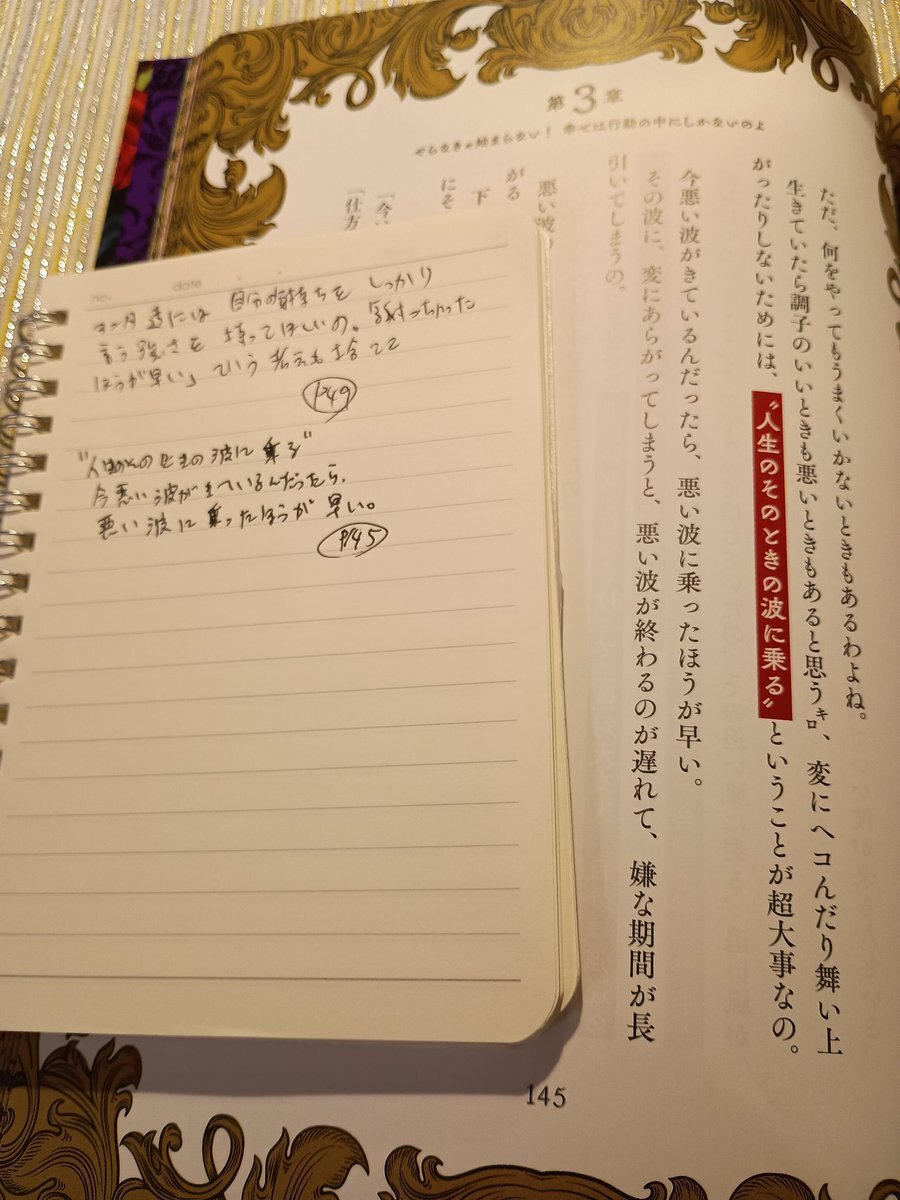 第3章
やらなきゃ始まらない！ 幸せは行動の中にしかないのよ
ただ、何をやってもうまくいかないときもあるわよね。
生きていたら調子のいいときも悪いときもあると思うキロ、変にヘコんだり舞い上
がったりしないためには、〝人生のそのときの波に乗る〟ということが超大事なの。
今悪い波がきているんだったら、悪い波に乗ったほうが早い。
その波に、変にあらがってしまうと、悪い波が終わるのが遅れて、嫌な期間が長
引いてしまうの。
悪い波
がる
下
にそ
「今、
「仕方
145
no. date
には 自分の気持ちを しっかり
言う強さを 持ってほしいの。黙っちゃった
ほうが早い」 ていう 考えも 捨てて
P49
のときの 波に 乗る"
今 悪い 波が きているんだったら、
悪い 波に 乗ったほうが 早い。
P145